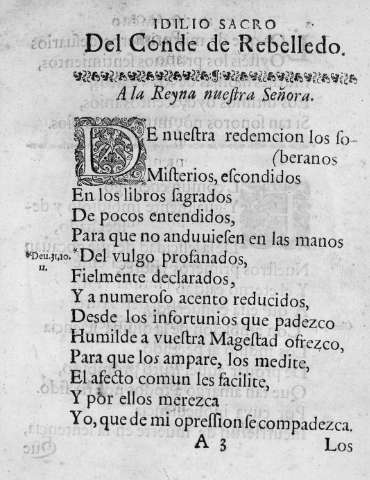 IDILIO SACRO
Del Conde de Rebelledo.
A la Reyna nueſtra Señora.
DE nueſtra redemcion los ſo-
(beranos
Miſterios, eſcondidos
En los libros ſagrados
De pocos entendidos,
Para que no anduuieſen en las manos
*Deu. 31. 10. 11.
*Del vulgo profanados,
Fielmente declarados,
Y a numeroſo acento reducidos,
Desde los infortunios que padezco
Humilde a vueſtra Mageſtad ofrezco,
Para que los ampare, los medite,
El afecto comun les facilite,
Y por ellos merezca
Yo, que de mi opreſſion ſe compadezca.
A 3 Los